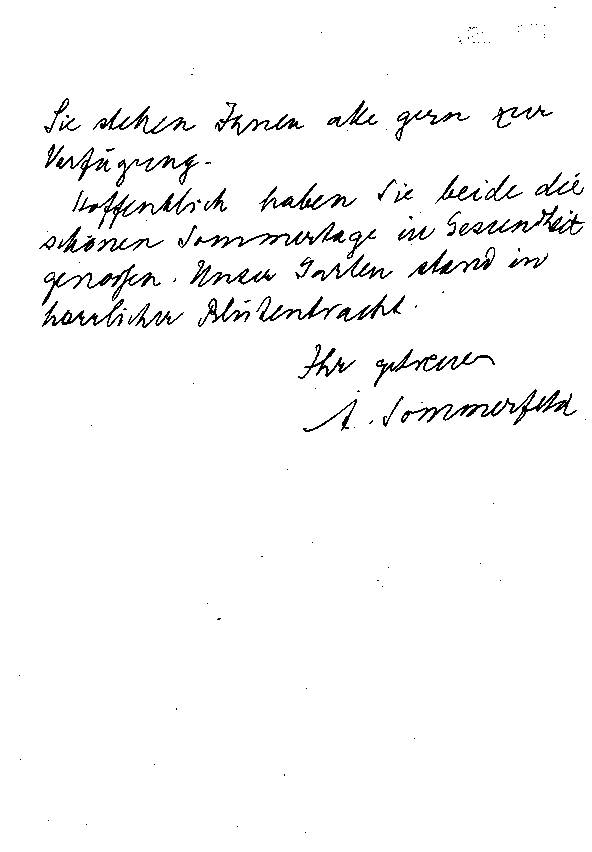 Sie stehen Ihnen alle gern zur
Verfügung.
Hoffentlich haben Sie beide die
schönen Sommertage in Gesundheit
genossen. Unser Garten stand in
herrlicher Blütentracht.
Ihr getreuer
A. Sommerfeld